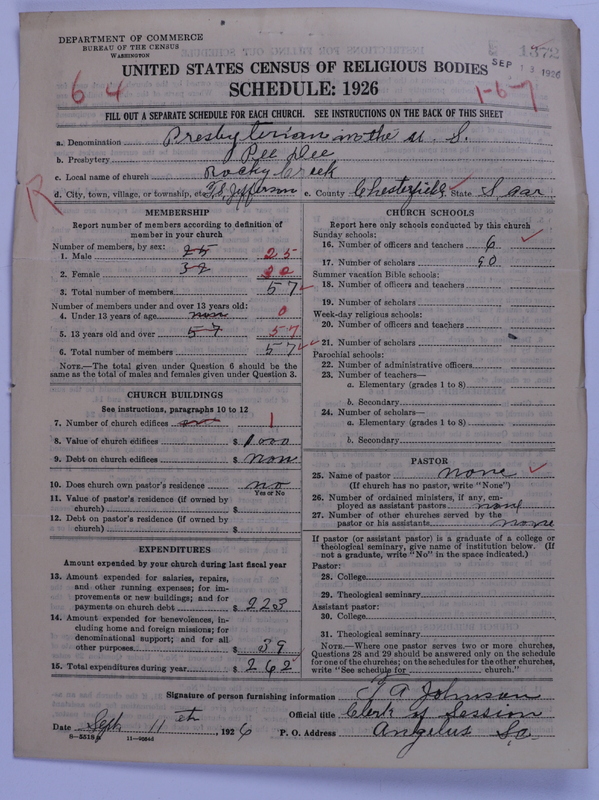 DEPARTMENT OF COMMERCE
BUREAU OF THE CENSUS
WASHINGTON
1372
SEP 13 1926
UNITED STATES CENSUS OF RELIGIOUS BODIES
SCHEDULE: 1926
6 4
1-6-7
FILL OUT A SEPARATE SCHEDULE FOR EACH CHURCH. SEE INSTRUCTIONS ON THE BACK OF THIS SHEET
R
a. Denomination Presbyterian in the U. S.
b. Presbytery Pee Dee
c. Local name of church Rocky Creek
d. City, town, village, or township, etc. Jefferson e. County Chesterfield State S Car
MEMBERSHIP
Report number of members according to definition of
member in your church
Number of members, by sex:
1. Male 25 25
2. Female 32 32
3. Total number of members 57
Number of members under and over 13 years old:
4. Under 13 years of age non 0
5. 13 years old and over 57 57
6. Total number of members 57
NOTE.—The total given under Question 6 should be the
same as the total of males and females given under Question 3.
CHURCH BUILDINGS
See instructions, paragraphs 10 to 12
7. Number of church edifices one 1
8. Value of church edifices $ 1000
9. Debt on church edifices $ non
10. Does church own pastor's residence? no
Yes or No
11. Value of pastor's residence (if owned by
church) $
12. Debt on pastor's residence (if owned by
church) $
EXPENDITURES
Amount expended by your church during last fiscal year
13. Amount expended for salaries, repairs,
and other running expenses; for im-
provements or new buildings; and for
payments on church debt $ 223
14. Amount expended for benevolences, in-
cluding home and foreign missions; for
denominational support; and for all
other purposes $ 39
15. Total expenditures during year $ 262
CHURCH SCHOOLS
Report here only schools conducted by this church
Sunday schools:
16. Number of officers and teachers 6
17. Number of scholars 90
Summer vacation Bible schools:
18. Number of officers and teachers
19. Number of scholars
Week-day religious schools:
20. Number of officers and teachers
21. Number of scholars
Parochial schools:
22. Number of administrative officers
23. Number of teachers—
a. Elementary (grades 1 to 8)
b. Secondary
24. Number of scholars—
a. Elementary (grades 1 to 8)
b. Secondary
PASTOR
25. Name of pastor none
(If church has no pastor, write "None")
26. Number of ordained ministers, if any, em-
ployed as assistant pastors none
27. Number of other churches served by the
pastor or his assistants none
If pastor (or assistant pastor) is a graduate of a college or
theological seminary, give name of institution below. (If
not a graduate, write "No" in the space indicated.)
Pastor:
28. College
29. Theological seminary
Assistant pastor:
30. College
31. Theological seminary
NOTE.—Where one pastor serves two or more churches,
Questions 28 and 29 should be answered only on the schedule
for one of the churches; on the schedules for the other churches,
write "See schedule for church."
Signature of person furnishing information Johnson
Official title Clerk of Session
Date Sept 11th, 1926 P. O. Address Angelus SC